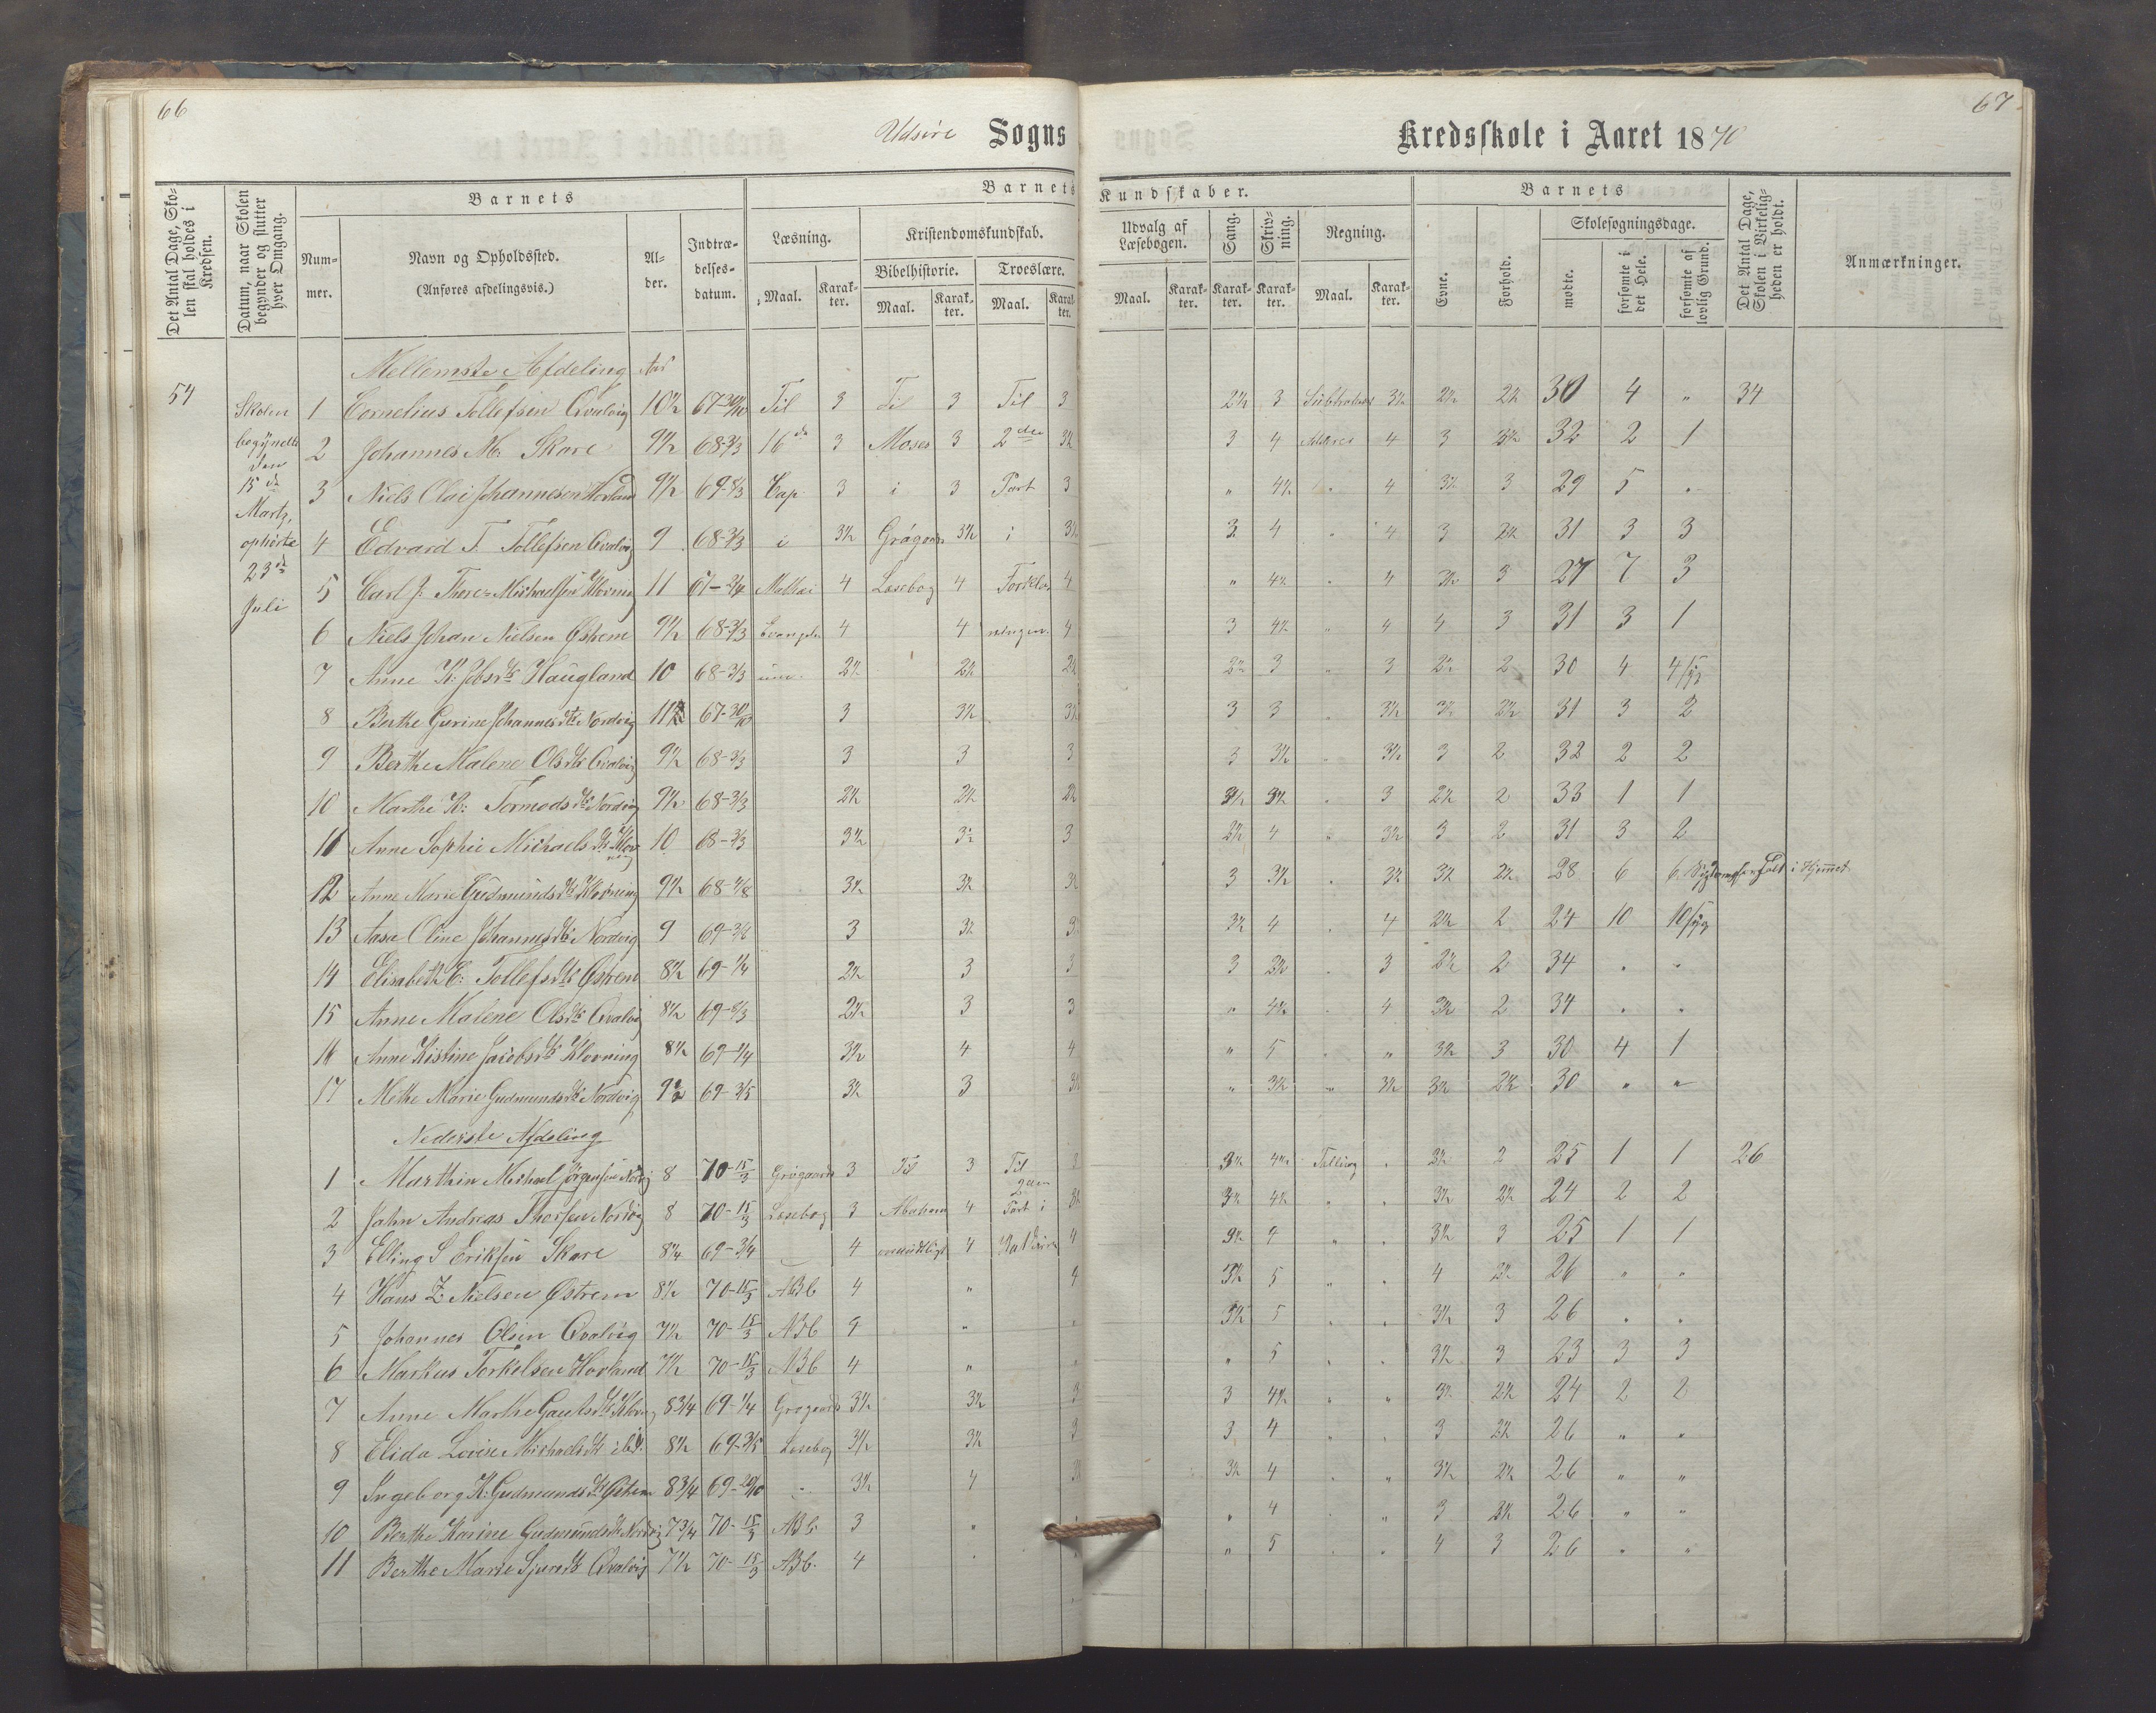 66
67
Udsire Sogns Kredsskole i Aaret 1870
Det Antal Dage, Skolen skal holdes i Kredsen.
Datum, naar Skolen begynder og slutter hver Omgang.
Barnets
Nummer.
Navn og Opholdssted.
(Anføres afdelingsvis.)
Alder.
Indtrædelsesdatum.
Barnets Kundskaber.
Læsning.
Kristendomskundskab.
Bibelhistorie.
Troeslære.
Udvalg af Læsebogen.
Sang.
Skrivning.
Regning.
Maal.
Karakter.
Barnets
Evne.
Forhold.
Skolesøgningsdage.
mødte.
forsømte i det Hele.
forsømte af lovlig Grund.
Det Antal Dage, Skolen i Virkeligheden er holdt.
Anmærkninger.
57
Skolen
begyndte
den
15de
Martz,
ophørte
23de
Juli
Mellemste Afdeling Aar
1 Cornelius Tollefsen Qvalvig 10½ 67-30/10 Til 3 Til 3 Til 3 2½ 3 3½ 2½ 2½ 30 4 " 34
2 Johannes M. Skare 9½ 68-3/3 16de 3 Moses 3 2den 3½ 3 4 4 3 32 2 1
3 Niels Olai Johannesen Hovland 9½ 69-8/3 Cap. 3 i 3 Part 3 " 4½ " 4 3½ 3 29 5 "
4 Edvard T. Tollefsen Qvalvig 9 68-3/3 i 3½ Grøgaards 3½ i 3½ 3 4 " 4 3 2½ 31 3 3
5 Carl J. Michaelsen Klovning 11 67- Mattæi 4 Læsebog 4 Forkla 4 " 4½ " 4 3½ 3 27 7 3
6 Niels Johan Nielsen Østrem 9½ 68-3/3 Evangeli 4 4 ringen. 4 3 4½ " 4 4 3 31 3 1
7 Anne K. Jobsdtr Haugland 10 68-3/3 um. 2½ 2½ 2½ 2½ 3 " 3 2½ 2 30 4 4 syg
8 Berthe Gurine Johannesdtr Nordvig 11 67-30/10 3 3½ 3½ 3 3 " 3½ 3½ 2½ 31 3 2
9 Berthe Malene Olsdtr Qvalvig 9½ 68-3/3 3 3 3 3 3½ " 3½ 3 2 32 2 2
10 Marthe K: Tormodsdtr Nordvig 9½ 68-3/3 2½ 2½ 2½ 3½ 3½ " 3 2½ 2 33 1 1
11 Anne Sophie Michaelsdtr Klovning 10 68-3/3 3½ 3½ 3 2½ 4 " 3½ 3 2 31 3 2
12 Anne Marie Gudmundsdtr Klovning 9½ 68- 3½ 3½ 3½ 3 3½ " 3½ 3½ 2½ 28 6 6. Sygdomsforfald i Hjemmet
13 Aasa Oline Johannesdtr Nordvig 9 69- 3 3½ 3½ 3½ 4 " 4 2½ 2 24 10 10 syg
14 Elisabeth C: Tollefsdtr Østrem 8½ 69-1/4 2½ 3 3 3 2½ " 3 2½ 2 34 " "
15 Anne Malene Olsdtr Qvalvig 8½ 69-8/3 2½ 3 3 " 4½ " 4 2½ 2 34 " "
16 Anne Kistine Jacobsdtr Klovning 8½ 69-1/4 3½ 4 4 " 5 " " 3½ 3 30 4 1
17 Methe Marie Gudmundsdtr Nordvig 9½ 69-3/5 3½ 3 3½ " 3½ " 3½ 3½ 2½ 30 " "
Nederste Afdeling
1 Marthin Michael Jørgensen Nordvig 8 70-15/3 Grøgaards 3 Til 3 Til 3 3½ 4½ Tælling " 3½ 2 25 1 1 26
2 John Andreas Thorsen Nordvig 8 70-15/3 Læsebog 3 Abraham 4 2den Part i 3½ 3½ 4½ " " 3½ 2½ 24 2 2
3 Elling S Eriksen Skare 8¼ 69-3/4 4 mundtligt 4 4 4 " " 3½ 3 25 1 1
4 Hans Z. Nielsen Østrem 8½ 70-15/3 ABC 4 " 4 3½ 5 " " 4 26 " "
5 Johannes Olsen Qvalvig 7½ 70-15/3 ABC 4 " " 3½ 5 " " 3½ 3 26 " "
6 Markus Torkelsen Hovland 7½ 70-15/3 ABC 4 " " " 5 " " 3½ 3 23 3 3
7 Anne Marthe Gautsdtr Klovning 8¾ 69-1/4 Grøgaards 3½ 3½ 3 3 4½ " " 3½ 2½ 24 2 2
8 Elida Lovise Michaelsdtr ibd. 8½ 69-3/5 Læsebog 3½ 3½ 3 3 4 " " 3 2½ 26 " "
9 Ingeborg K: Gudmundsdtr Østrem 8¾ 69-20/10 " 3½ 4 3½ 3½ 4 " " 3½ 2½ 26 " "
10 Berthe Karine Gudmundsdtr Nordvig 7¾ 70-15/3 ABC 3 " " " 4 " " 3 2½ 26 " "
11 Berthe Marie Sjursdtr Qvalvig 7½ 70-15/3 ABC. 4 " " " 5 " " 4 3 26 " "